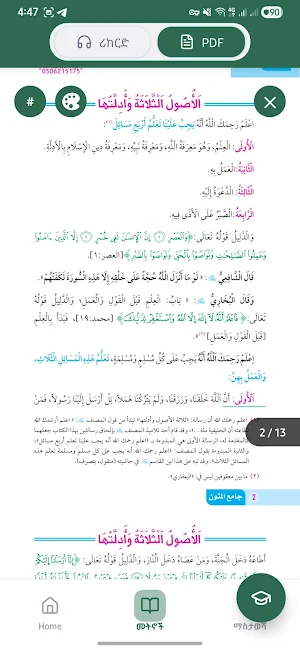 4:47
90
ሪከርድ
PDF
"0506215175"
#
اَلْأُصُولُ الثَّلَاثَةُ وَأَدِلَّتُهَا
اعْلَمْ رَحِمَكَ اللَّهُ أَنَّهُ يَجِبُ عَلَيْنَا تَعَلُّمُ أَرْبَعِ مَسَائِلَ(١):
الْأُولَى: الْعِلْمُ، وَهُوَ مَعْرِفَةُ اللَّهِ، وَمَعْرِفَةُ نَبِيِّهِ، وَمَعْرِفَةُ دِينِ الْإِسْلَامِ بِالْأَدِلَّةِ.
الثَّانِيَةُ: الْعَمَلُ بِهِ.
الثَّالِثَةُ: الدَّعْوَةُ إِلَيْهِ.
الرَّابِعَةُ: الصَّبْرُ عَلَى الْأَذَى فِيهِ.
وَالدَّلِيلُ قَوْلُهُ تَعَالَى: ﴿وَالْعَصْرِ ۝ إِنَّ الْإِنسَانَ لَفِي خُسْرٍ ۝ إِلَّا الَّذِينَ ءَامَنُوا
وَعَمِلُوا الصَّالِحَاتِ وَتَوَاصَوْا بِالْحَقِّ وَتَوَاصَوْا بِالصَّبْرِ﴾ [العصر:١].
قَالَ الشَّافِعِيُّ : «لَوْ مَا أَنْزَلَ اللَّهُ حُجَّةً عَلَى خَلْقِهِ إِلَّا هَذِهِ السُّورَةَ لَكَفَتْهُمْ».
وَقَالَ الْبُخَارِيُّ : «بَابٌ: الْعِلْمُ قَبْلَ الْقَوْلِ وَالْعَمَلِ؛ وَالدَّلِيلُ قَوْلُهُ
تَعَالَى: ﴿فَاعْلَمْ أَنَّهُ لَا إِلَهَ إِلَّا اللَّهُ وَاسْتَغْفِرْ لِذَنبِكَ﴾ [محمد:١٩]، فَبَدَأَ بِالْعِلْمِ
[قَبْلَ الْقَوْلِ وَالْعَمَلِ](٢)».
اِعْلَمْ رَحِمَكَ اللَّهُ أَنَّهُ يَجِبُ عَلَى كُلِّ مُسْلِمٍ وَمُسْلِمَةٍ، تَعَلُّمُ هَذِهِ الْمَسَائِلِ الثَّلَاثِ،
وَالْعَمَلُ بِهِنَّ:
الْأُولَى: أَنَّ اللَّهَ خَلَقَنَا، وَرَزَقَنَا، وَلَمْ يَتْرُكْنَا هَمَلًا، بَلْ أَرْسَلَ إِلَيْنَا رَسُولًا، فَمَنْ
اعلم رحمك الله أن رسالة: «ثلاثة الأصول وأدلتها» تبدأ من قول المصنف : «اعلم أرشدك الله
2 / 13
(٢) ما بين معقوفين ليس في: «البخاري».
2 جامع المتون
اَلْأُصُولُ الثَّلَاثَةُ وَأَدِلَّتُهَا
أَطَاعَهُ دَخَلَ الْجَنَّةَ، وَمَنْ عَصَاهُ دَخَلَ النَّارَ، وَالدَّلِيلُ قَوْلُهُ تَعَالَى: ﴿إِنَّا أَرْسَلْنَا إِلَيْكُمْ
Home
መትኖች
ማስታወሻ